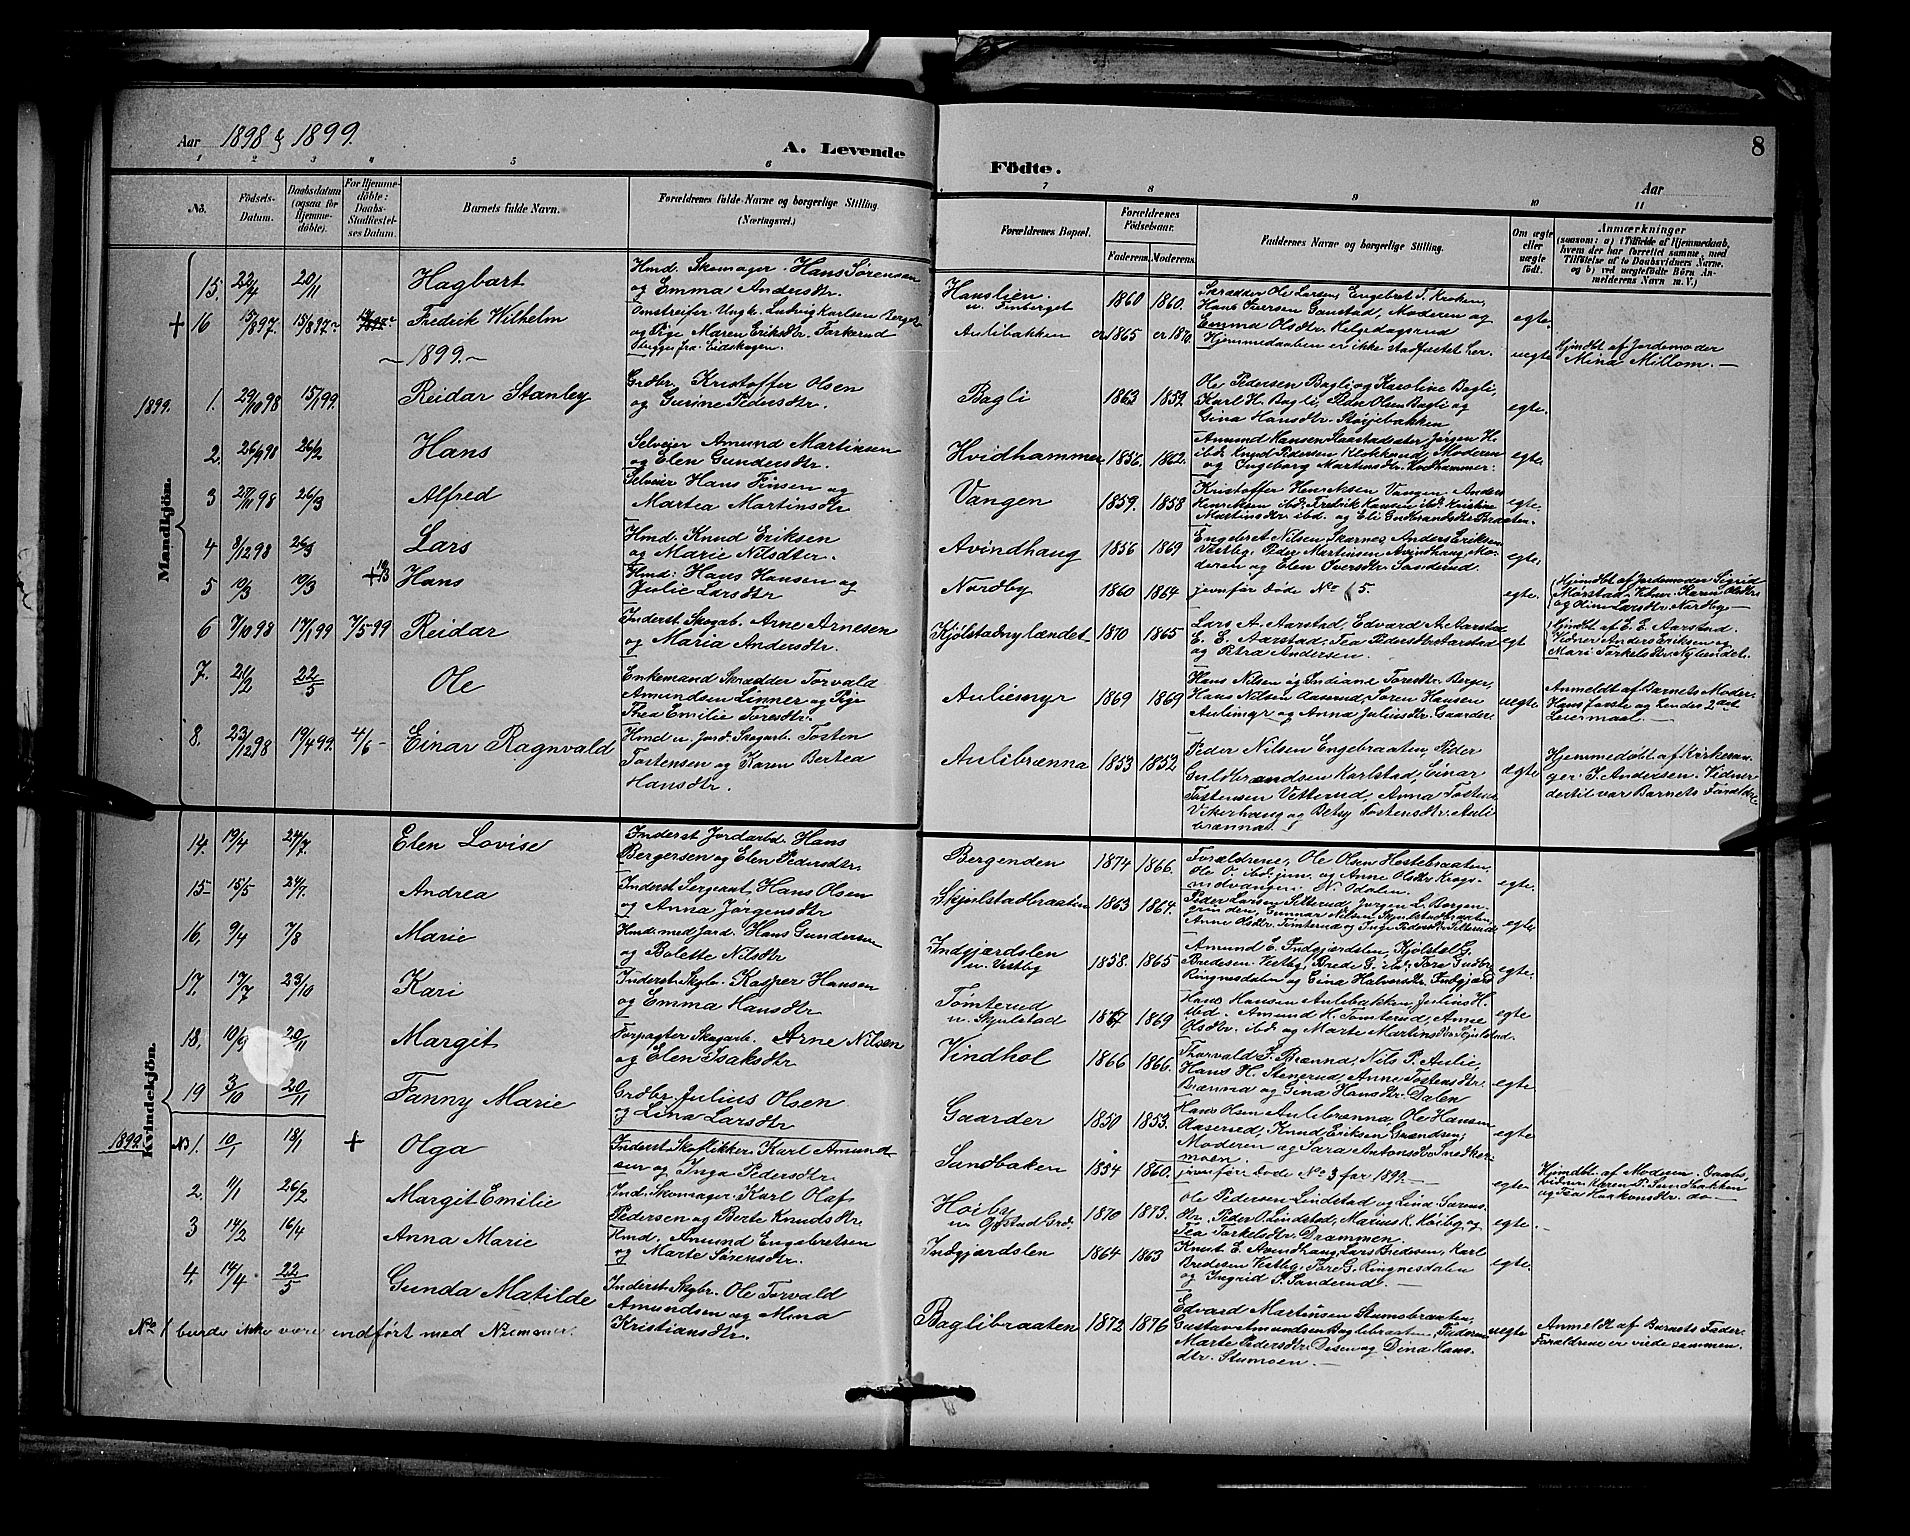 Aar 1898 & 1899.
A. Levende
Födte.
8
Aar
1 2 3 4 5 6
7 8 9 10 11
No.
Födsels-Datum.
Daabsdatum (ogsaa for Hjemmedöbte).
For Hjemmedöbte: Daabs-Stadfæstelses Datum.
Barnets fulde Navn.
Forældrenes fulde Navne og borgerlige Stilling. (Næringsvei.)
Forældrenes Bopæl.
Forældrenes Födselsaar.
Faderens. Moderens.
Faddernes Navne og borgerlige Stilling.
Om ægte eller uægte födt.
Anmærkninger
(saasom: a) i Tilfælde af Hjemmedaab, hvem der har forrettet samme, med Tilföielse af to Daabsvidners Navne. og b) ved uægtefödte Börn Anmelderens Navn m. V.)
Mandkjön.
15. 22/4 20/11 Hagbart
Hmd. Skomager Hans Sørensen
og Emma Andersdtr.
Hanslien u. Finberget 1860 1860.
Skrædder Ole Larsen, Engebret T. Kroken,
Hans Iversen Gaustad, Moderen og
Emma Olsdtr. Helgedagsrud
egte.
+ 16 15/897 15/897
Fredrik Wilhelm
Omstreifer Ungk. Ludvig Karlsen Berger
og Pige Maren Eriksdtr. Torkerud
Skigge fra Eidskogen.
Aulibakken 1865
Hjemmedaaben er ikke stadfæstet her.
uegte
Hjmdbt af Jordemoder
Mina Millom.
~ 1899. ~
1899. 1. 29/10 98 15/1 99. Reidar Stanley
Grdbr. Kristoffer Olsen
og Gurine Pedersdtr.
Bagli 1863 1859.
Ole Pedersen Bagli og Karoline Bagli,
Karl H. Bagli, Peder Olsen Bagli og
Gina Hansdtr. Støjebakken
egte.
2. 26/9 98 26/2 Hans
Selveier Amund Martinsen
og Elen Gundersdtr.
Hvidhammer 1856. 1862.
Amund Hansen Saastadsæter Jørgen H.
ibd. Knud Pedersen Klokkerud, Moderen
og Ingeborg Martinsdtr. Hvidhammer.
egte
3 28/11 98 26/3 Alfred
Selveier Hans Finsen og
Martea Martinsdtr
Vangen 1859. 1858
Kristoffer Henriksen Vangen, Anders
Henriksen ibd. Fredrik Hansen ibd. Kristine
Martinsdtr. ibd. og Eli Gudbrandsdtr. Braaten.
egte.
4 8/12 98 26/3 Lars
Hmd. Knud Eriksen
og Marie Nilsdtr.
Avindhaug 1856 1869
Engebret Nilsen Skarnes, Anders Eriksen
Vestby, Peder Martinsen Avindhaug, Mo-
deren og Elen Iversdtr. Sanderud.
egte.
5 10/3 10/3 + Hans
Hmd. Hans Hansen og
Julie Larsdtr
Nordby 1860 1864
jevnfør døde No 5.
egte.
Hjmdbt af Jordemoder Sigrid
Morstad. Vdner. Karen Olsdtr.
og Oline Larsdtr. Nordby
6 7/10 98 17/1 99 7/5 99 Reidar
Inderst. Skogarb. Arne Arnesen
og Maria Andersdtr.
Kjølstadnylændet 1870 1865
Lars A. Aarstad, Edvard A. Aarstad
E. E. Aarstad, Tea Pedersdtr. Aarstad
og Petra Andersen.
egt
Hjmdbt af E. E. Aarstad.
Vidner Anders Eriksen og
Mari Torkelsdtr. Nylændet.
7. 21/2 22/5 Ole
Enkemand Skrædder Torvald
Amundsen Linner og Pige
Thea Emilie Toresdtr.
Auliemyr 1869 1869
Hans Nilsen og Indiane Toresdtr. Berger,
Hans Nilsen Aaserud, Søren Hansen
Aulimyr og Anna Juliusdtr. Gaarder.
uegte
Anmeldt af Barnets Moder
Hans første og hendes 2det
Leiermaal.
8. 23/12 98 19/4 99. 4/6 Einar Ragnvald
Hmd u. Jord. Skogarb. Tosten
Tostensen og Karen Bertea
Hansdtr.
Aulibrænna 1853 1852
Peder Nilsen Engebraaten, Peder
Guldbrandsen Karlstad, Einar
Tostensen Vetterud, Anna Tostensd.
Vikerhaug og Betsy Tostensdtr. Auli
brænna.
Ægte
Hjemmedøbt af Kirkesan-
ger J. Andersen. Vidner
dertil var Barnets Forældre.
Kvindekjön.
14. 19/4 24/7. Elen Lovise
Inderst Jordarbd. Hans
Bergersen og Elen Pedersdtr.
Bergenden 1874 1866.
Forældrene, Ole Olsen Hestebraaten,
Ole O. ibd. jun. og Anne Olsdtr Krogs-
mdvangen. N. Odalen.
egte.
15 15/5 24/7. Andrea
Inderst Sergeant Hans Olsen
og Anna Jørgensdtr
Skjølstadbraaten 1863 1864.
Peder Larsen Sillerud, Jørgen L. Bergen-
den, Gunnar Nilsen Skjulstadbraaten,
Anne Olsdtr. Tømterud og Inge Pedersdtr. Sillerud
egte
16. 9/4 7/8 Marie
Hmd. med Jord. Hans Gundersen
og Bolette Nilsdtr
Indgjærdslen u. Vestby 1858. 1865
Amund E. Indgjærdslen, Kjølstel G.
Bredesen Vestby, Brede G. ibd. Tore Gudbr.
Ringnesdalen og Gina Halvorsdtr. Indgjærds
egte.
17. 17/7 23/10 Kari
Inderst. Skgb. Kasper Hansen
og Emma Hansdtr
Tømterud u. Skjulstad 1867 1869
Hans Hansen Aulibakken, Julius H.
ibd. Amund H. Tømterud, Anne
Olsdtr. ibd og Marte Martinsdtr. Skjulstad.
egte
18. 10/9 20/11 Margit
Forpagter Skogarb. Arne Nilsen
og Elen Isaksdtr.
Vindhol 1866 1866.
Thorvald J. Brænna, Nils P. Aulie,
Hans H. Stenerud, Anne Tostensdtr.
Brænna og Gina Hansdtr. Dalen
egte
19 3/10 20/11 Fanny Marie
Grdbr. Julius Olsen
og Lina Larsdtr.
Gaarder 1850 1853.
Hans Olsen Aulibrænna, Ole Hansen
Aaserud, Knud Eriksen Grændsen,
Moderen og Sara Antonsdtr. Snedker-
moen.
egte
1899. No 1. 10/1 18/1 + Olga
Inderst Skoflikker. Karl Amund-
sen og Inga Pedersdtr.
Sundbaken 1854 1860.
jevnfør døde No 3 for 1899.
egte.
Hjmdbt. af Moderen.
Vidner Karen P. Sundbakken
og Tea Haakonsdtr. do
2. 11/1 26/2 Margit Emilie
Ind. Skomager Karl Olaf
Pedersen og Berte Knudsdtr.
Høiby u Opstad Grd. 1870 1873.
Ole Pedersen Lindstad og Lina Sørens-
dtr. Peder O. Lindstad, Marius K. Høiby og
Tea Torkelsdtr. Drammen.
egte.
3 14/2 16/4 Anna Marie
Hmd. Amund Engebretsen
og Marte Sørensdtr.
Indgjærdslen 1864 1863
Knut E. Avindhaug, Lars Bredesen, Karl
Bredesen Vestby, Tore G. Ringnesdalen
og Ingrid P. Sanderud.
egte.
4. 14/4 22/5 Gunda Matilde
Inderst Skgbr. Ole Torvald
Amundsen og Mina
Kristiansdtr.
Baglibraaten 1872 1876
Edvard Martinsen Stumobraaten,
Gustav Amundsen Baglibraaten, Faderen
Marte Pedersdtr. Disen og Dina Hans-
dtr. Stumoen.
uegte
Anmeldt af Barnets Fader.
Forældrene er viede sammen.
No 1 burde ikke være indført med Nummer.